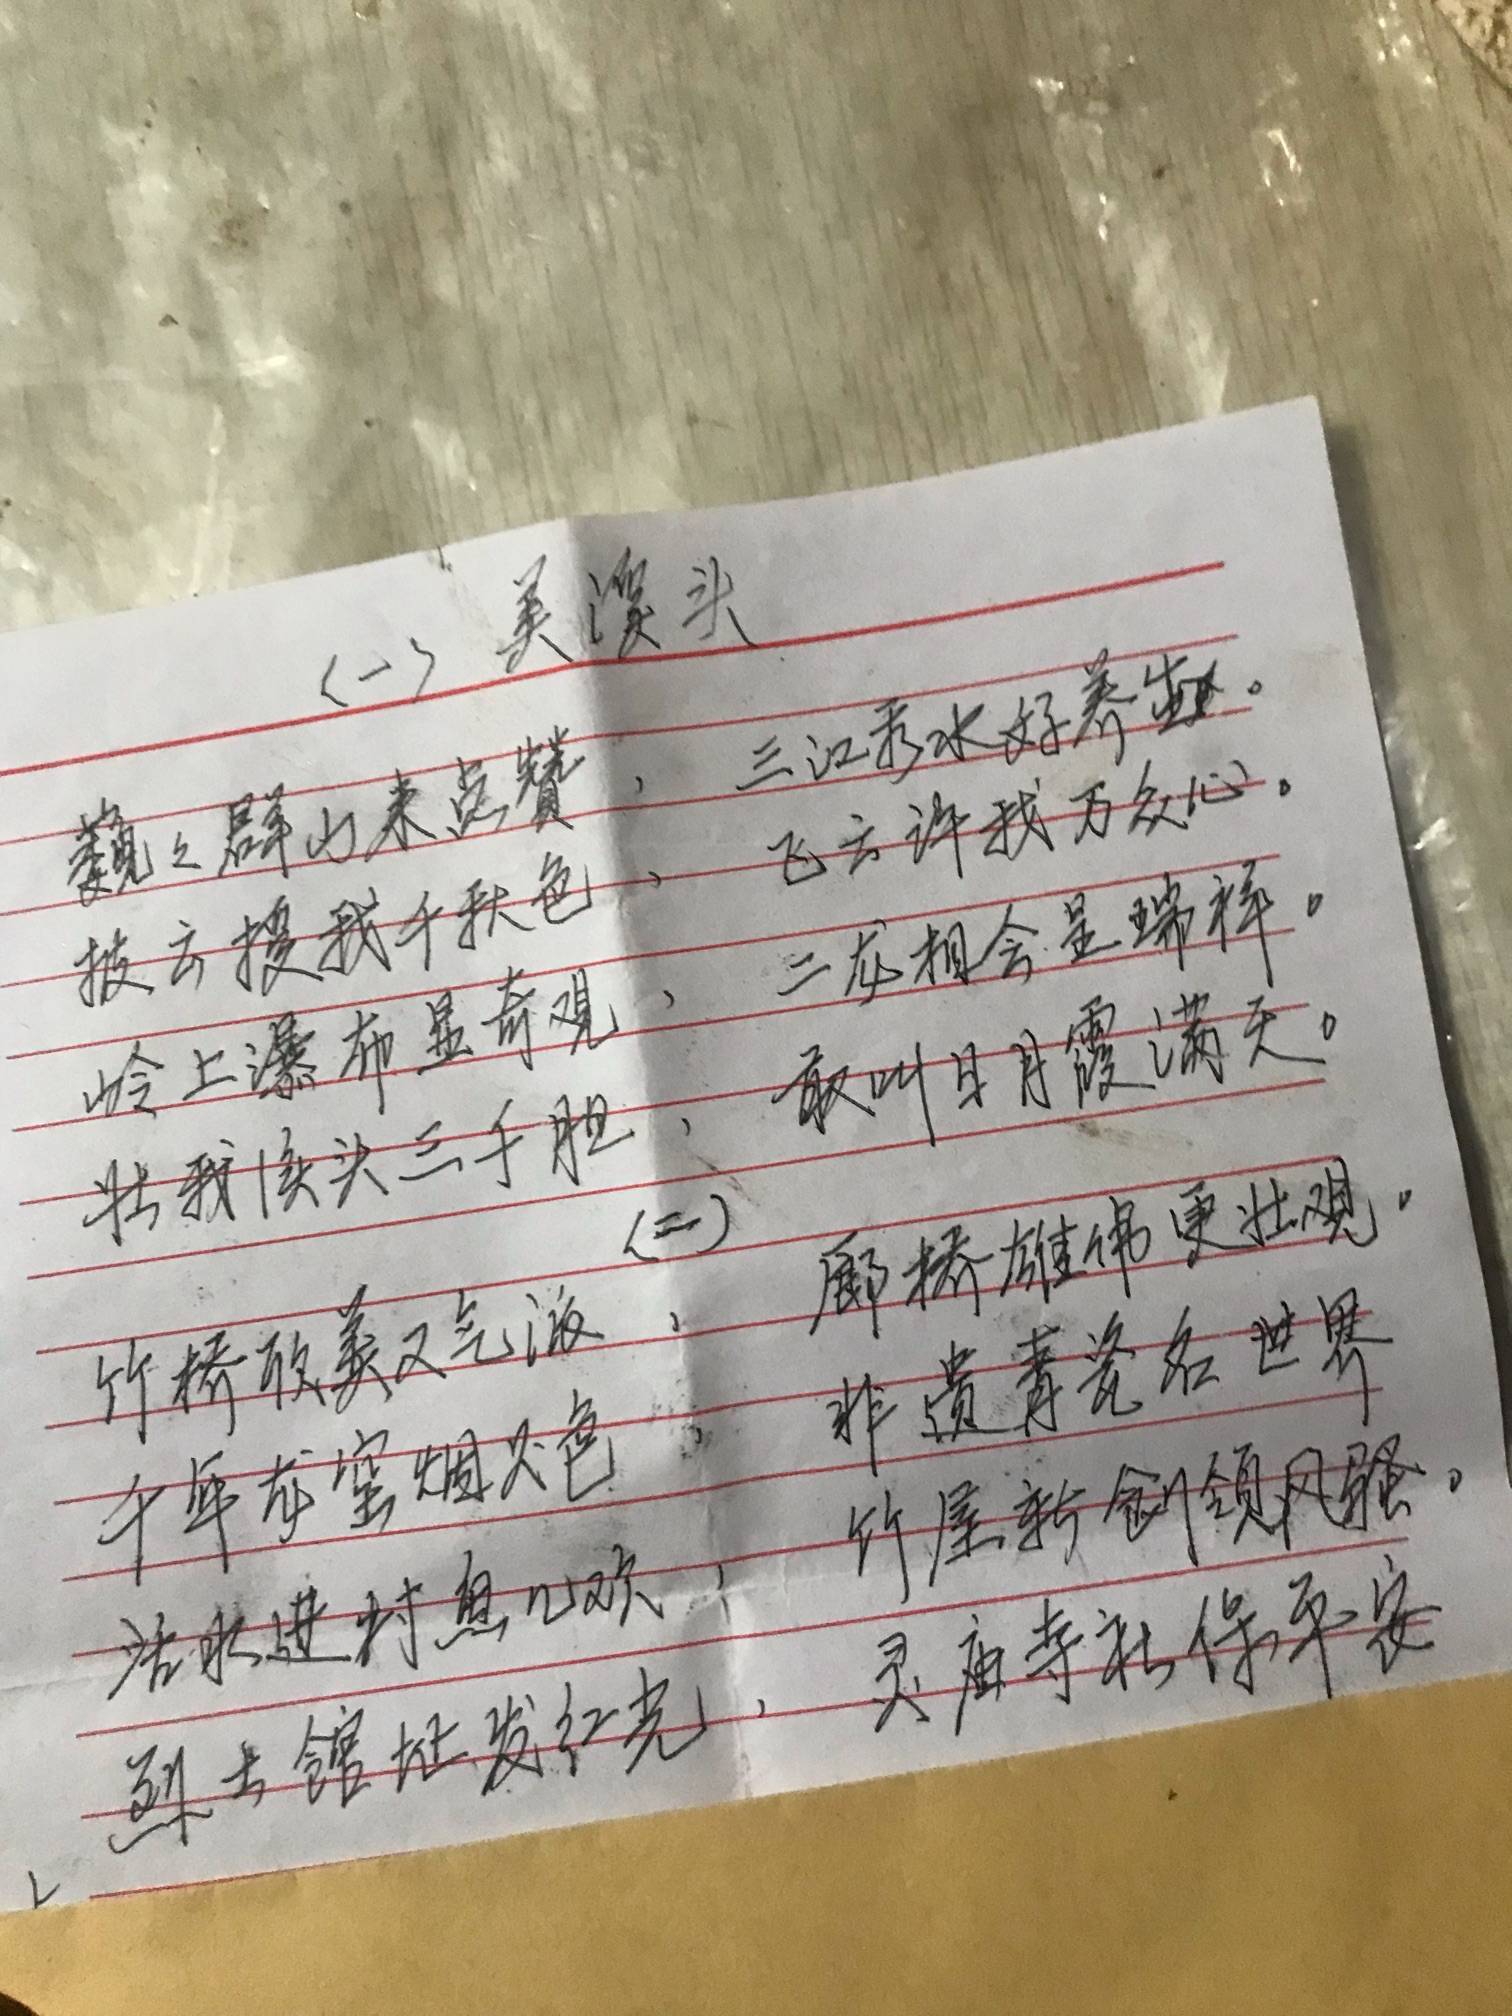 (一) 美溪头
巍々群山来点赞，三江秀水好养蛙。
披云授我千秋色，飞云许我万众心。
岭上瀑布显奇观，二龙相会呈瑞祥。
壮我溪头三千胆，敢叫日月霞满天。
(二)
竹桥欣美又气派，廊桥雄伟更壮观。
千年龙窑烟火色，非遗青瓷名世界
活水进村鱼儿欢，竹屋新创领风骚。
烈士馆址发红光，灵庙寺社保平安